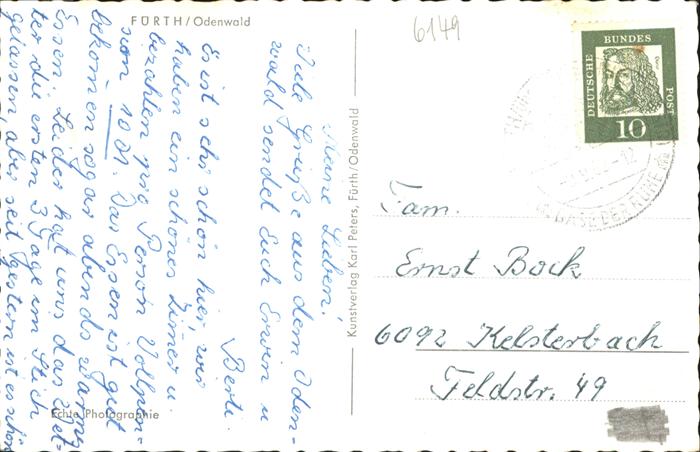 FÜRTH/Odenwald
6149
DEUTSCHE
BUNDES
POST
10
OASE DER RUHE
Meine Lieben!
Viele Grüße aus dem Oden-
wald sendet Euch Erwin u
Berti.
Es ist sehr schön hier, wir
haben ein schönes Zimmer u.
bezahlen pro Person Vollpen-
sion 10 DM. Das Essen ist gut
bekommen sogar abends warmes
Essen. Leider hat uns das Wet-
ter die ersten 3 Tage im Stich
gelassen, aber seit gestern ist es schön
Kunstverlag Karl Peters, Fürth/Odenwald
Fam.
Ernst Bock
6092 Kelsterbach
Feldstr. 49
Echte Photographie